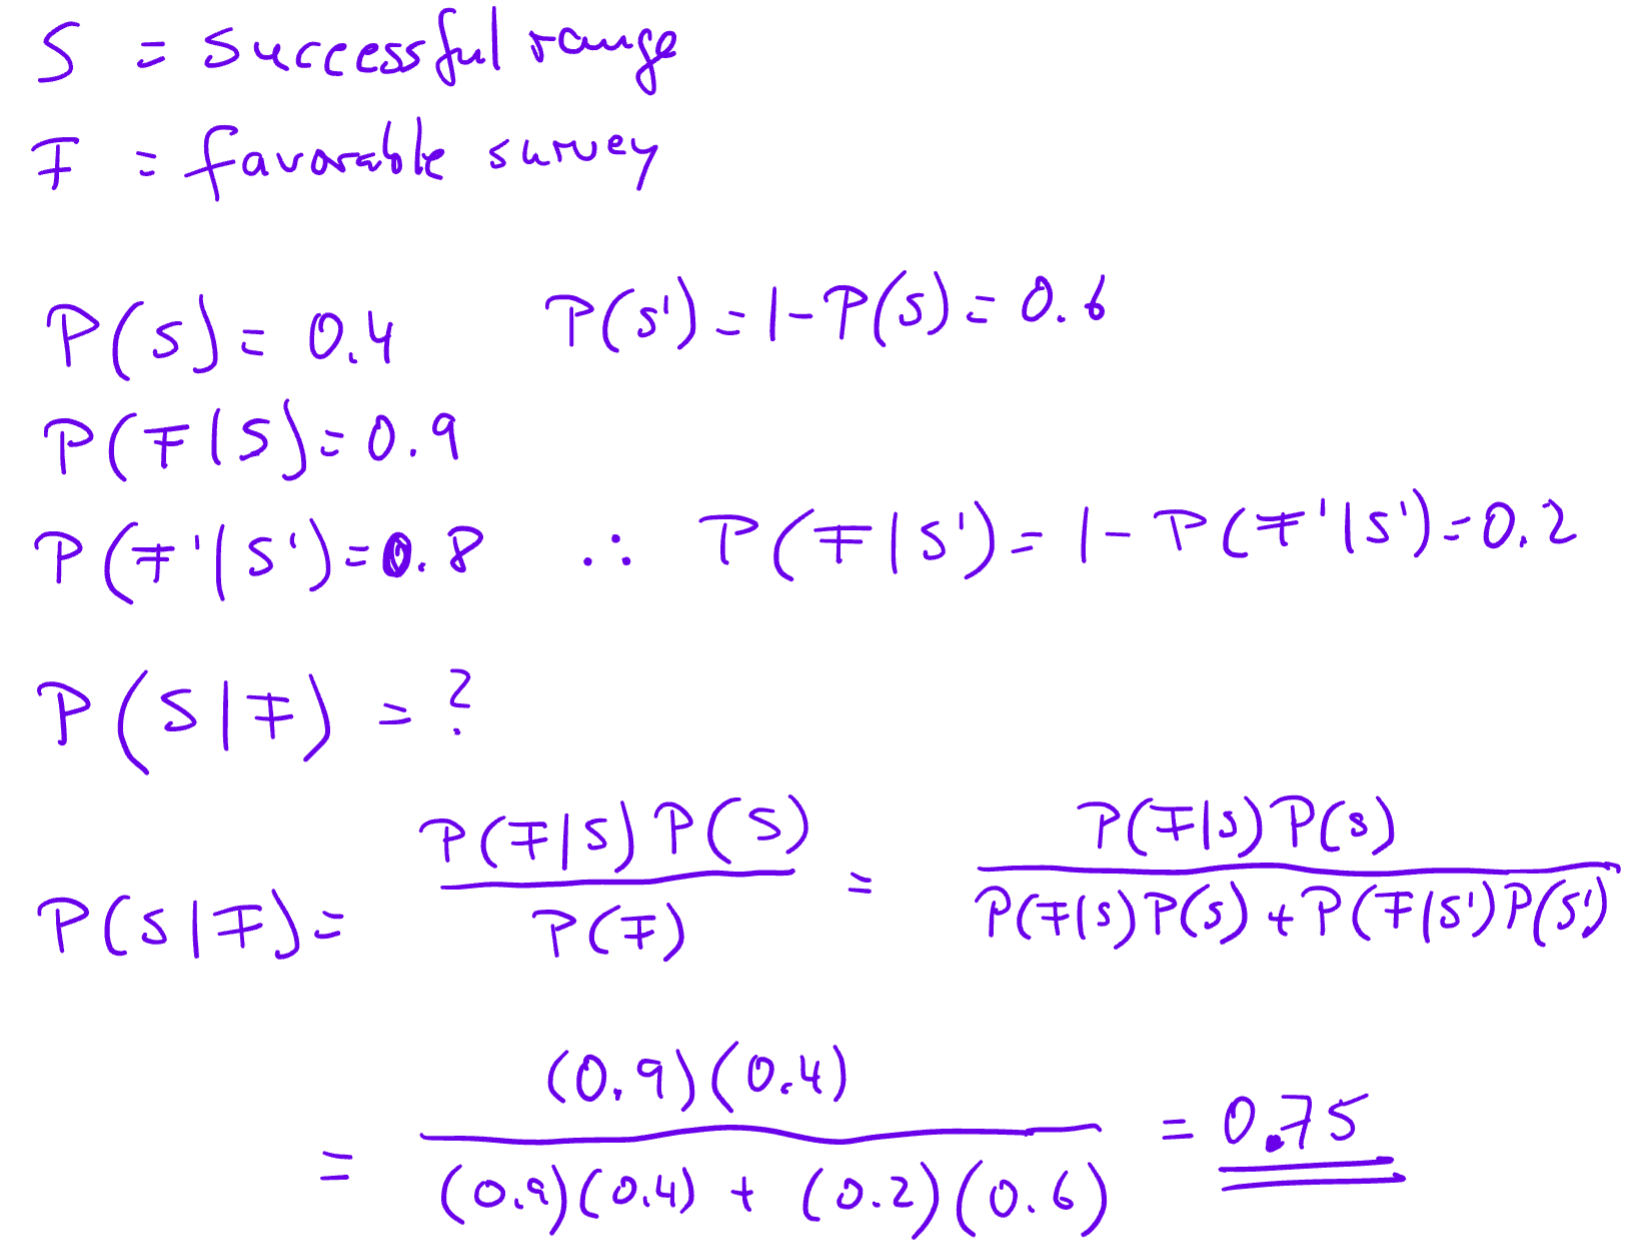 S = successful range
F = favorable survey
P(S) = 0.4 P(S') = 1 - P(S) = 0.6
P(F|S) = 0.9
P(F'|S') = 0.8 ∴ P(F|S') = 1 - P(F'|S') = 0.2
P(S|F) = ?
P(F|S) P(S) P(F|S) P(S)
P(S|F) = ——— = ———
P(F) P(F|S) P(S) + P(F|S') P(S')
(0.9)(0.4)
= ——— = 0.75
(0.9)(0.4) + (0.2)(0.6)